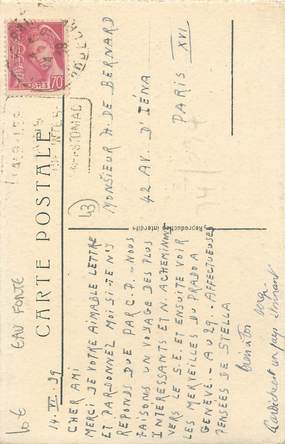 CARTE POSTALE
Reproduction interdite
43
14-VI-39
CHER AMI.
MERCI DE VOTRE AIMABLE LETTRE
ET PARDONNEZ MOI SI JE N'Y
REPONDS QUE PAR C.P. - NOUS
FAISONS UN VOYAGE DES PLUS
INTERESSANTS ET N. ACHEMINONS
VERS LE S.E. ET ENSUITE VOIR
LES MERVEILLES DU PRADO A
GENEVE. - AU 29. - AFFECTUEUSES
PENSÉES DE STELLA
MONSIEUR H. DE BERNARD
42 AV. D'IÉNA
PARIS XVI
10€ EAU FORTE
POSTES
70
ESTOMAC